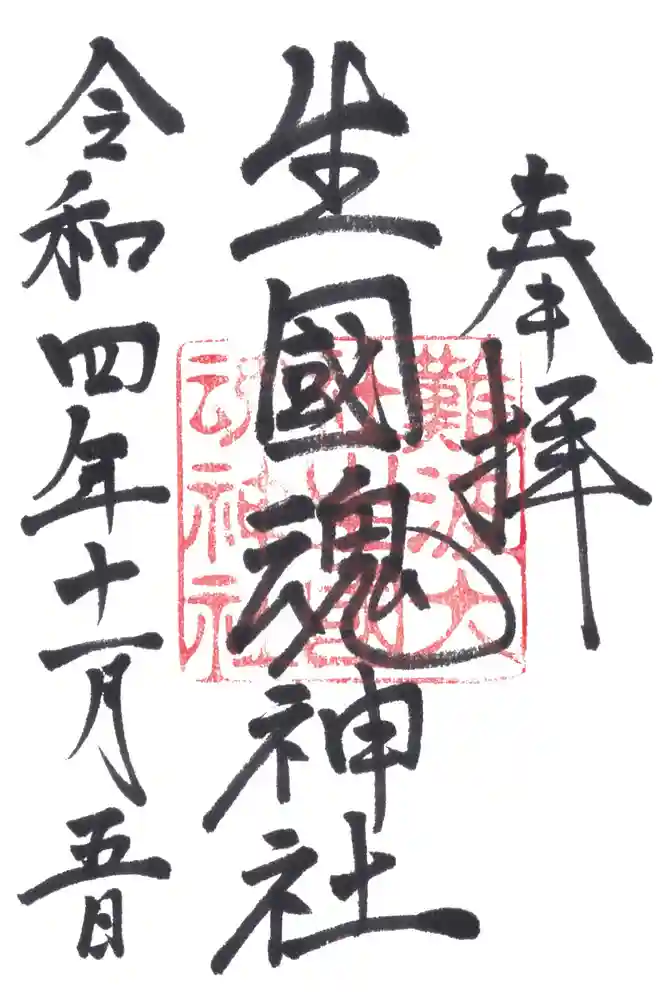 奉拝
生國魂神社
令和四年十一月五日
難波大社生國魂神社